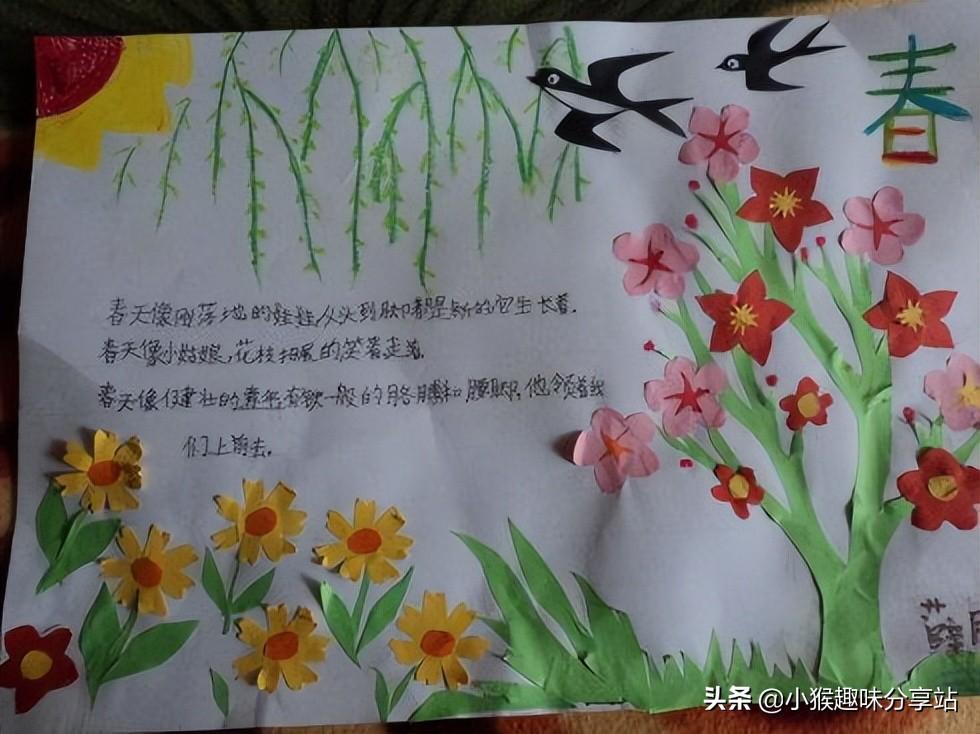 春
春天像刚落地的娃娃,从头到脚都是新的,它生长着。
春天像小姑娘,花枝招展的,笑着走着。
春天像健壮的青年,有铁一般的胳膊和腰脚,他领着我
们上前去。
头条 @小猴趣味分享站